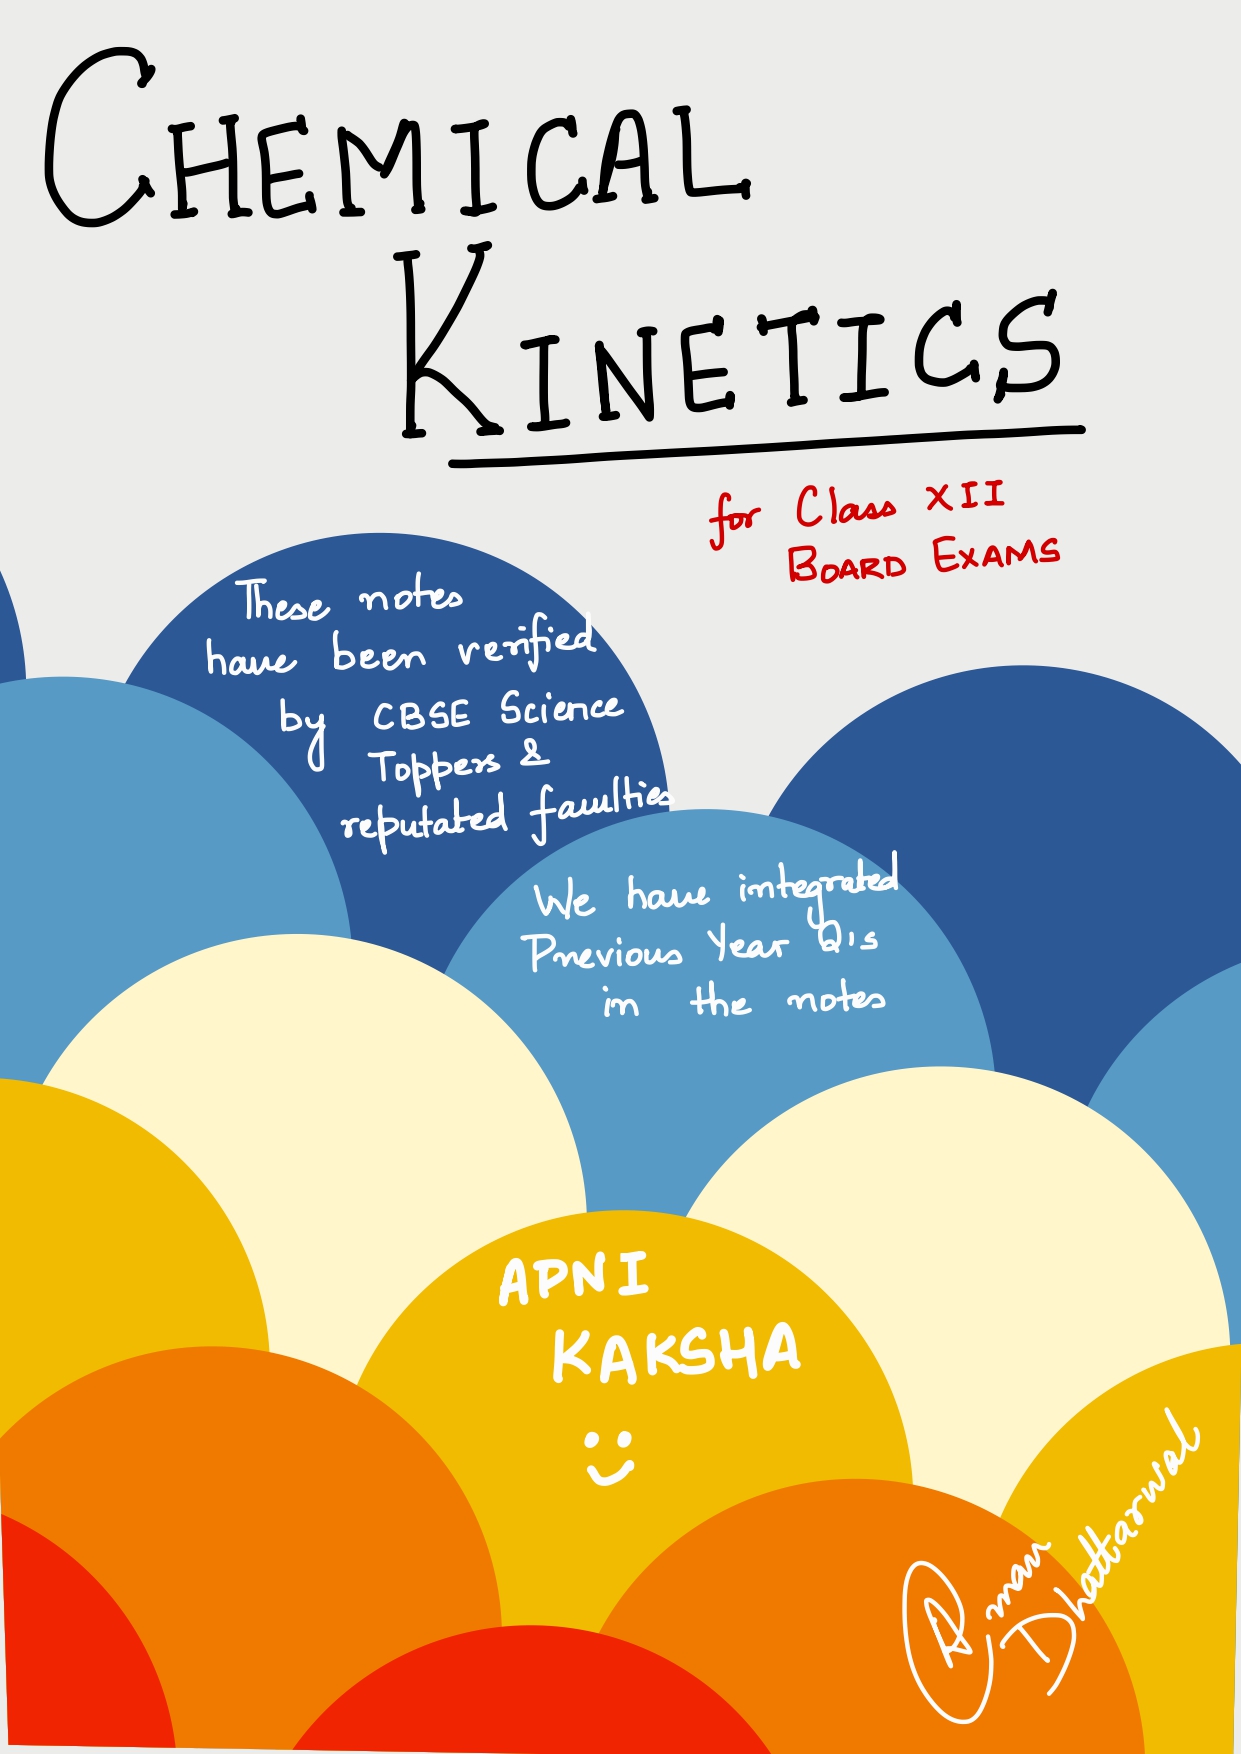 CHEMICAL
KINETICS
for Class XII
BOARD EXAMS
These notes
have been verified
by CBSE Science
Toppers &
reputated faculties
We have integrated
Previous Year Q's
in the notes
APNI
KAKSHA
Aman
Dhattarwal